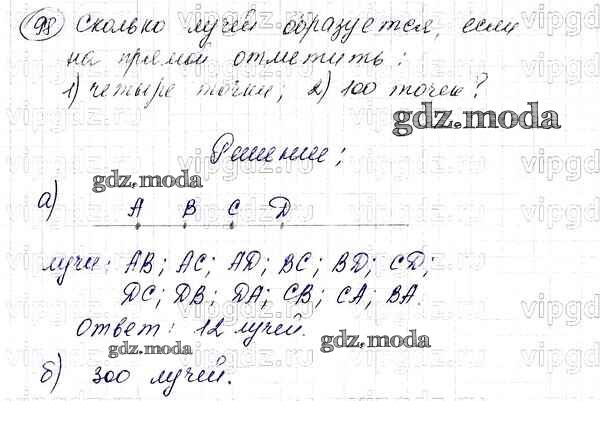 98 Сколько лучей образуется, если
на прямой отметить:
1) четыре точки; 2) 100 точек?
gdz.moda
Решение:
gdz.moda
а)
A B C D
лучи: AB; AC; AD; BC; BD; CD;
DC; DB; DA; CB; CA; BA.
Ответ: 12 лучей.
gdz.moda
gdz.moda
б) 300 лучей.
vipgdz.ru